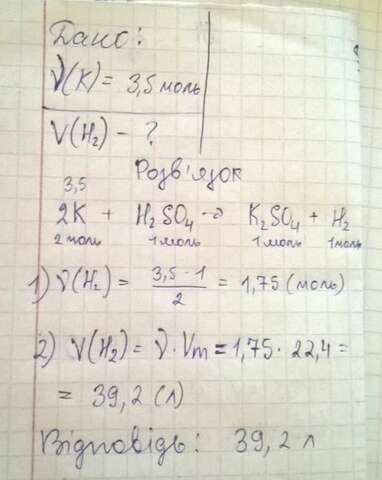 Дано:
ν(K) = 3,5 моль
V(H₂) - ?
Розв'язок
3,5
2K + H₂SO₄ → K₂SO₄ + H₂
2 моль 1 моль 1 моль 1 моль
1) ν(H₂) = 3,5 · 1 / 2 = 1,75 (моль)
2) V(H₂) = ν · Vm = 1,75 · 22,4 =
= 39,2 (л)
Відповідь: 39,2 л